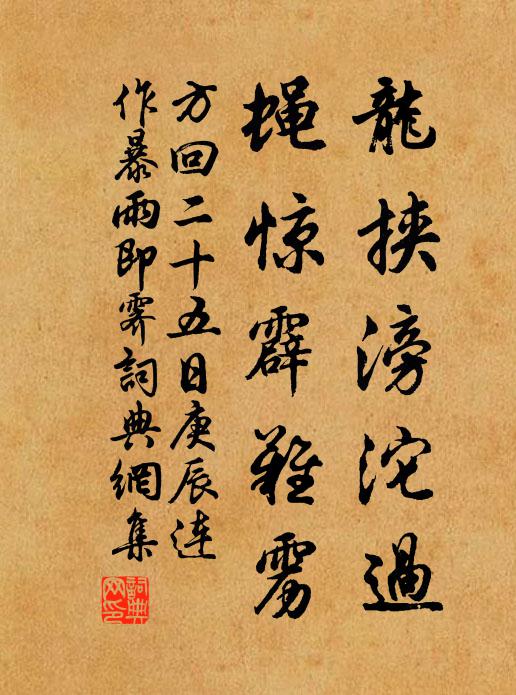 龍挟滂沱過
蝇惊霹難雳
方回二十五日庚辰連
作暴雨即霁詞典網集
詞典
网印